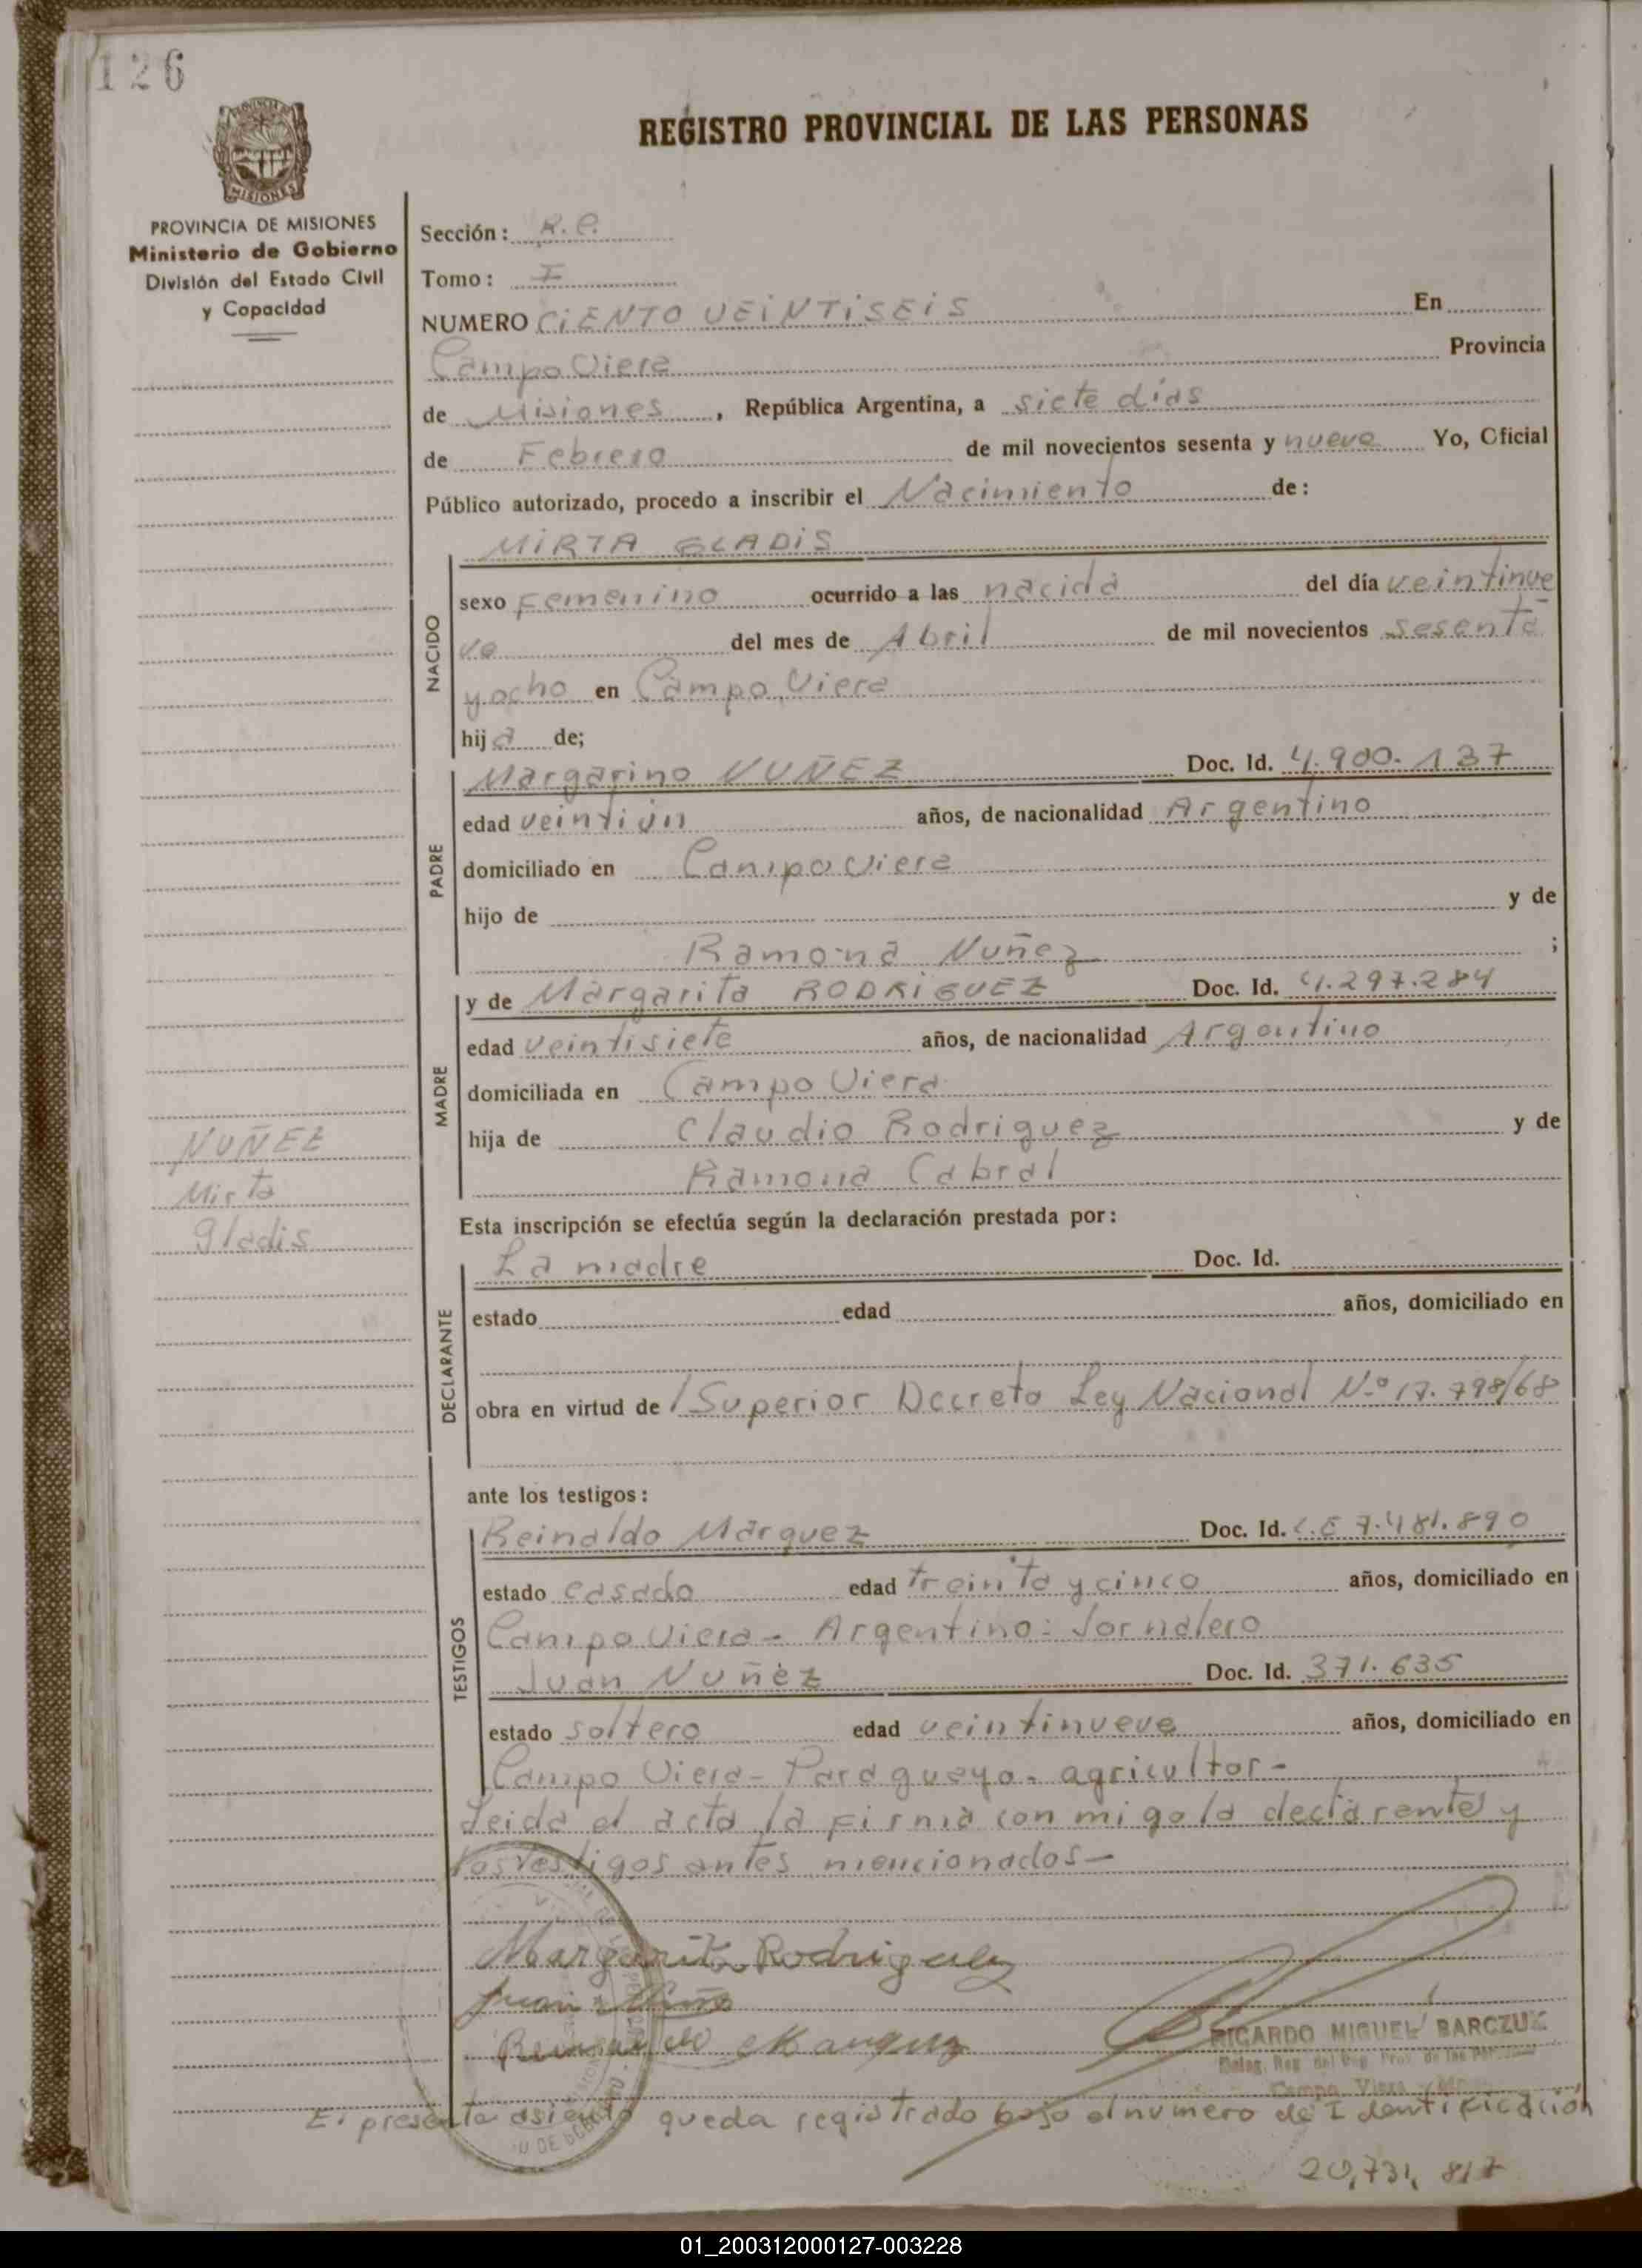 126
MISIONES
REGISTRO PROVINCIAL DE LAS PERSONAS
PROVINCIA DE MISIONES
Ministerio de Gobierno
División del Estado Civil
y Capacidad
NUÑEZ
Mirta
gladis
Sección: R. P.
Tomo: I
NUMERO CIENTO VEINTISEIS En
Campo Viera Provincia
de Misiones, República Argentina, a siete días
de Febrero de mil novecientos sesenta y nueve Yo, Oficial
Público autorizado, procedo a inscribir el Nacimiento de:
NACIDO
MIRTA GLADIS
sexo Femenino ocurrido a las nacida del día veintinue
ve del mes de Abril de mil novecientos sesenta
y ocho en Campo Viera
hija de;
PADRE
Margarino NUÑEZ Doc. Id. 4.900.137
edad veintiún años, de nacionalidad Argentino
domiciliado en Campo Viera
hijo de y de
Ramona Nuñez ;
MADRE
y de Margarita RODRIGUEZ Doc. Id. 4.297.284
edad veintisiete años, de nacionalidad Argentino
domiciliada en Campo Viera
hija de Claudio Rodriguez y de
Ramona Cabral
Esta inscripción se efectúa según la declaración prestada por:
DECLARANTE
La madre Doc. Id.
estado edad años, domiciliado en
obra en virtud de / Superior Decreto Ley Nacional N.º 17.798/68
ante los testigos:
TESTIGOS
Reinaldo Marquez Doc. Id. L.E 7.481.890
estado casado edad treinta y cinco años, domiciliado en
Campo Viera - Argentino: Jornalero
Juan Nuñez Doc. Id. 371.635
estado soltero edad veintinueve años, domiciliado en
Campo Viera - Paraguayo - agricultor -
Leida el acta la firma con migo la declarente y
los testigos antes mencionados -
Margarita Rodriguez
Juan
Reinaldo Marquez
RICARDO MIGUEL BARCZUK
Deleg. Reg. del Reg. Prov. de las Personas
Campo Viera
El presente asiento queda registrado bajo el numero de Identificación
20,731, 817
01_200312000127-003228